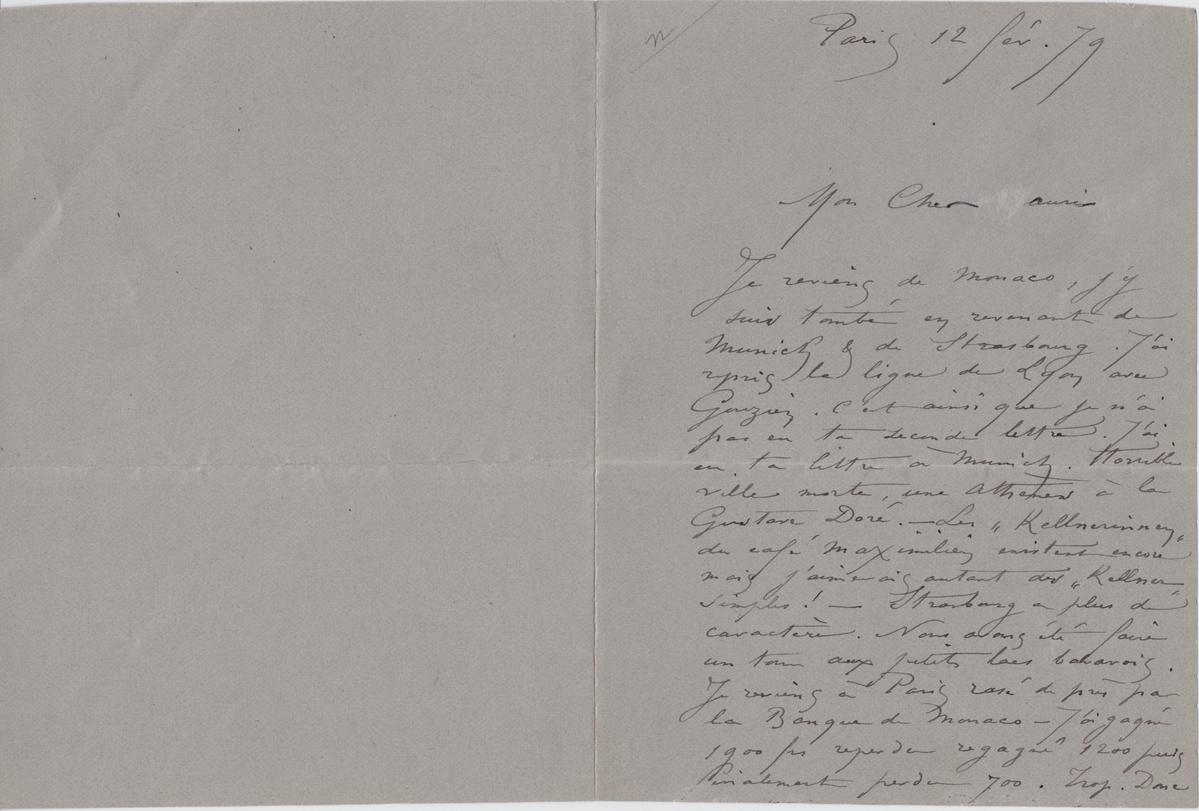 n
Paris 12 fév. 79
Mon Cher ami
Je reviens de Monaco, j'y
suis tombé en revenant de
Munich & de Strasbourg. J'ai
repris la ligne de Lyon avec
Gouzien. C'est ainsi que je n'ai
pas eu ta seconde lettre. J'ai
eu ta lettre à Munich. Horrible
ville morte, une Athènes à la
Gustave Doré. — Les „Kellnerinnen"
du café Maximilien existent encore
mais j'aimerais autant des „Kellner"
simples! — Strasbourg a plus de
caractère. Nous avons été faire
un tour aux petits lacs bavarois.
Je reviens à Paris rasé de près par
la Banque de Monaco — J'ai gagné
1900 frs reperdu regagné 1200 puis
finalement perdu 700. Trop. Donc